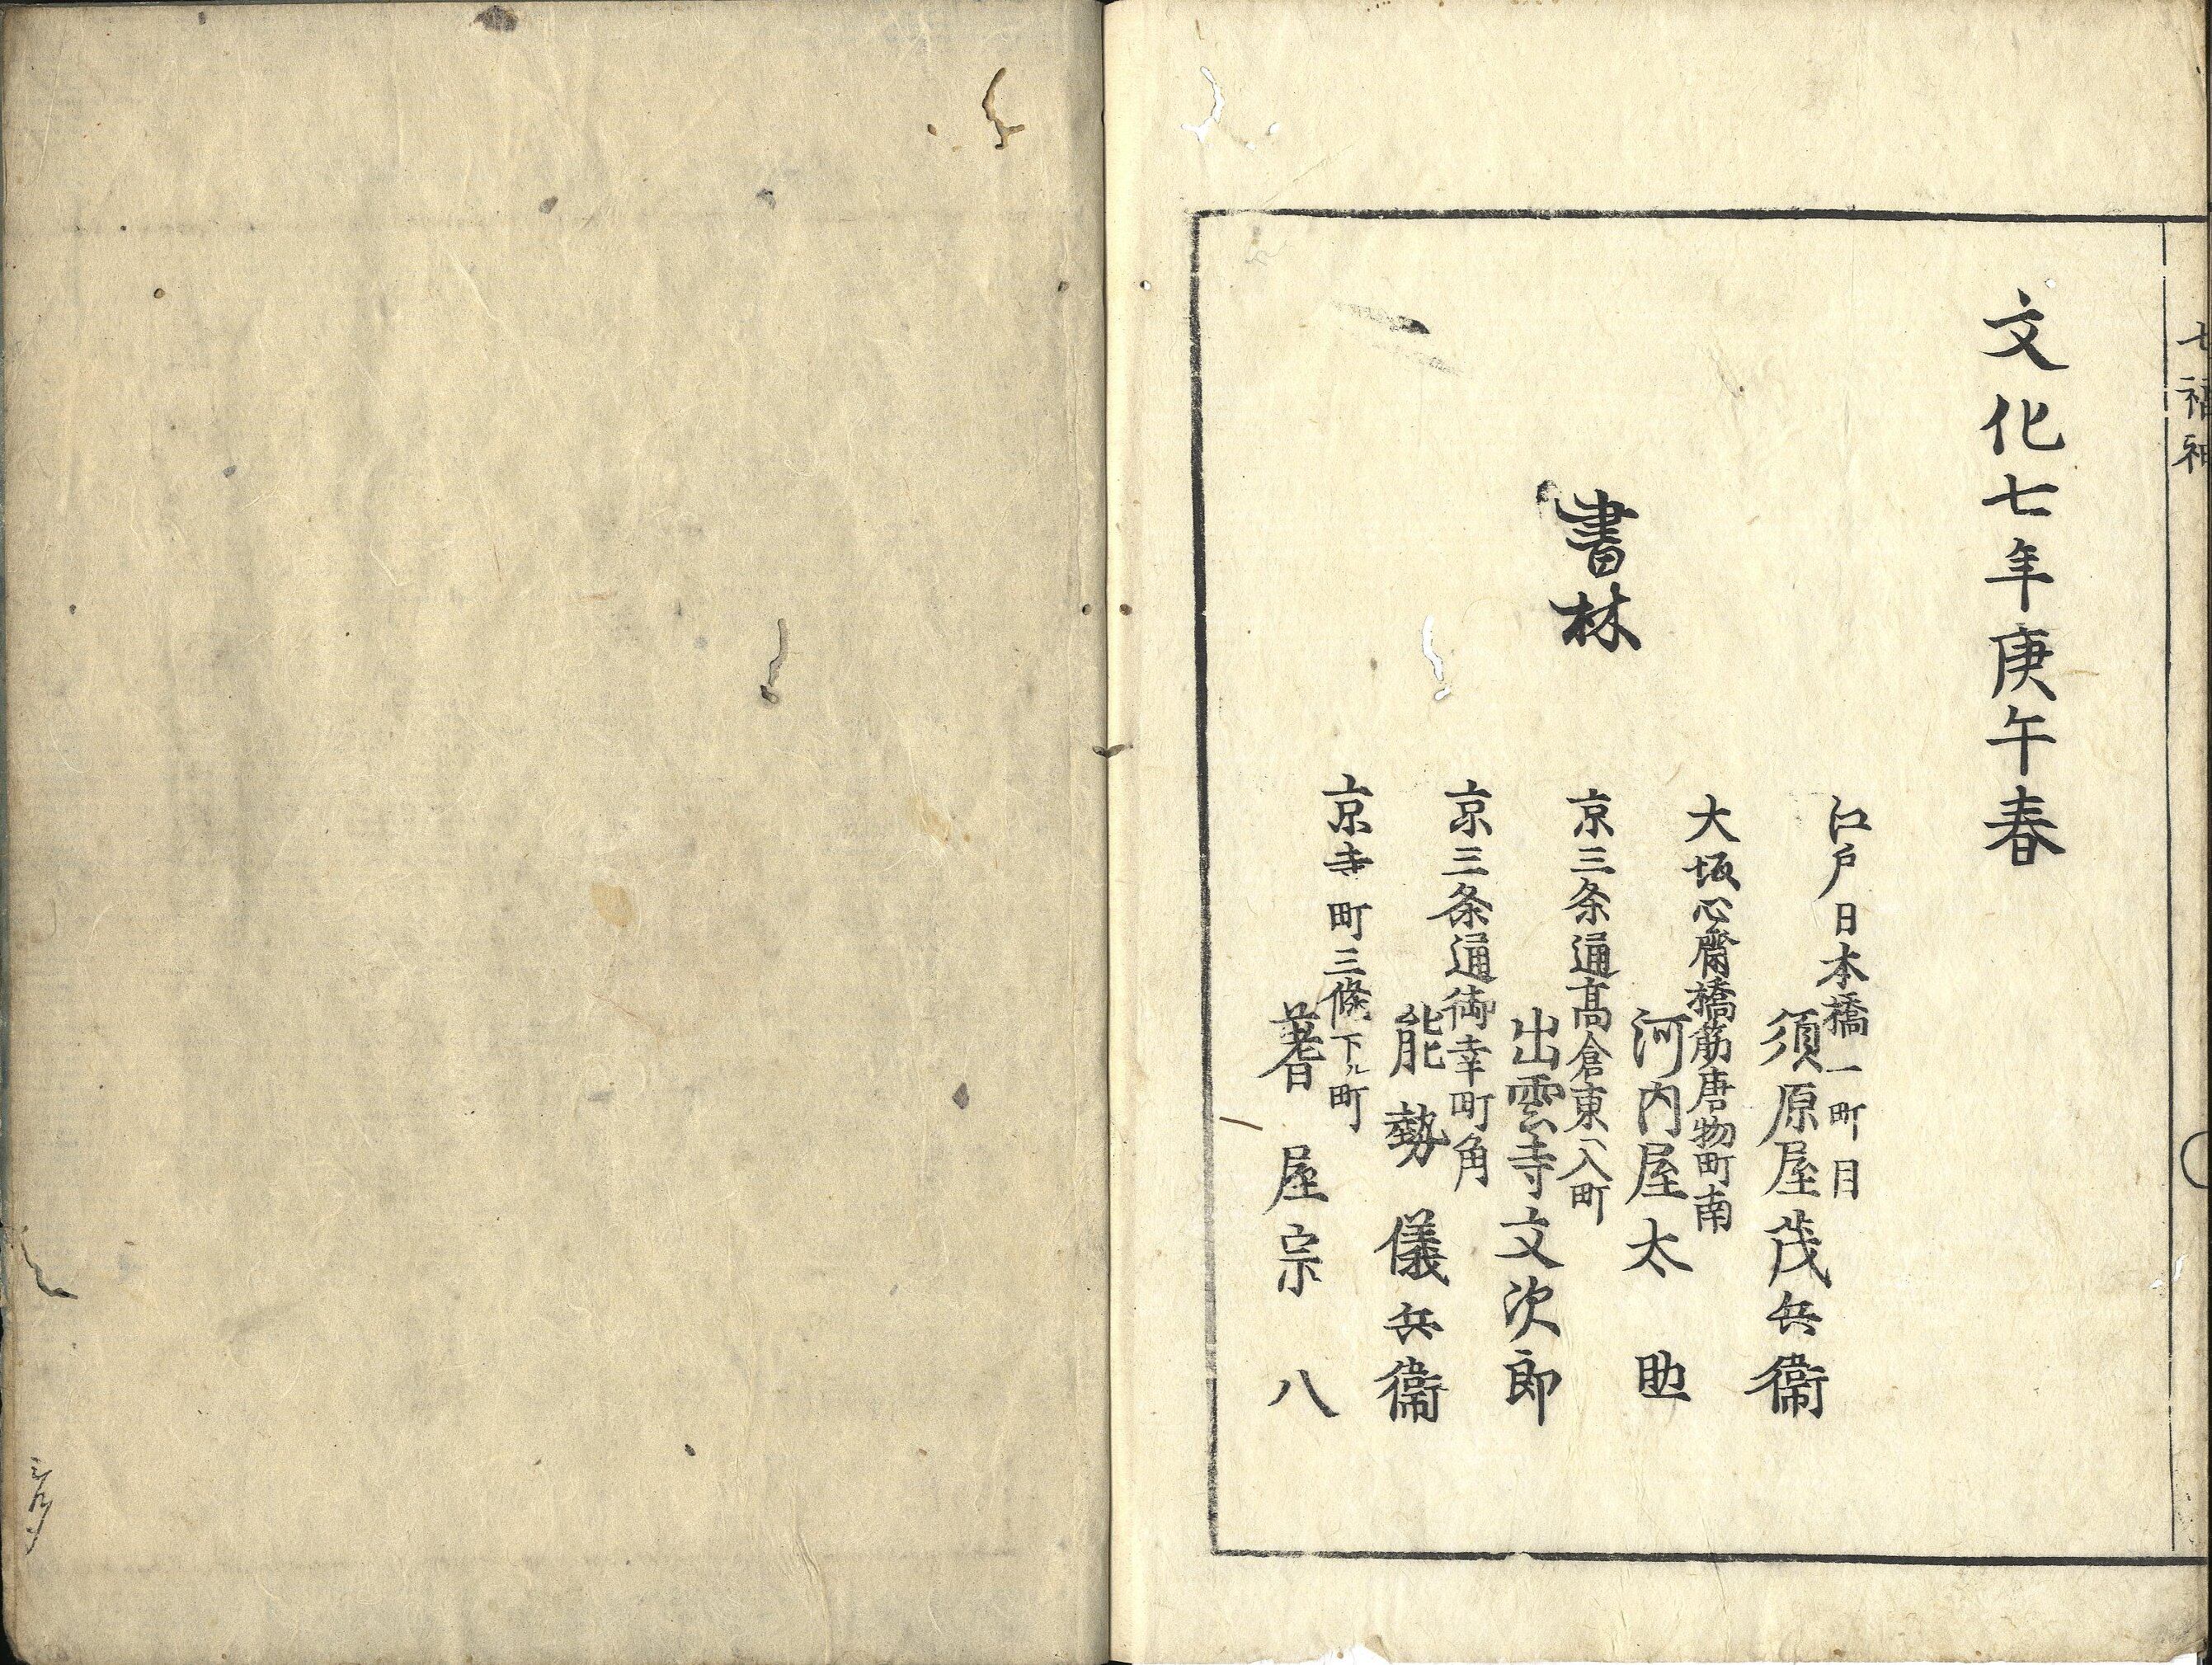 七福神
文化七年庚午春
書林
江戸日本橋一町目
須原屋茂兵衞
大坂心齋橋筋唐物町南
河内屋太助
京三条通髙倉東ヘ入町
出雲寺文次郎
京三条通御幸町角
能勢儀兵衞
京寺町三條下ル町
蓍屋宗八